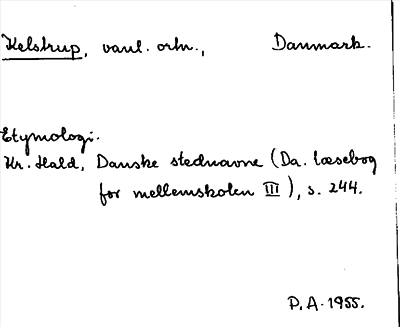 Kelstrup, vanl. ortn., Danmark.
Etymologi.
Kr. Hald, Danske stednavne (Da. læsebog
for mellemskolen III), s. 244.
P.A. 1955.